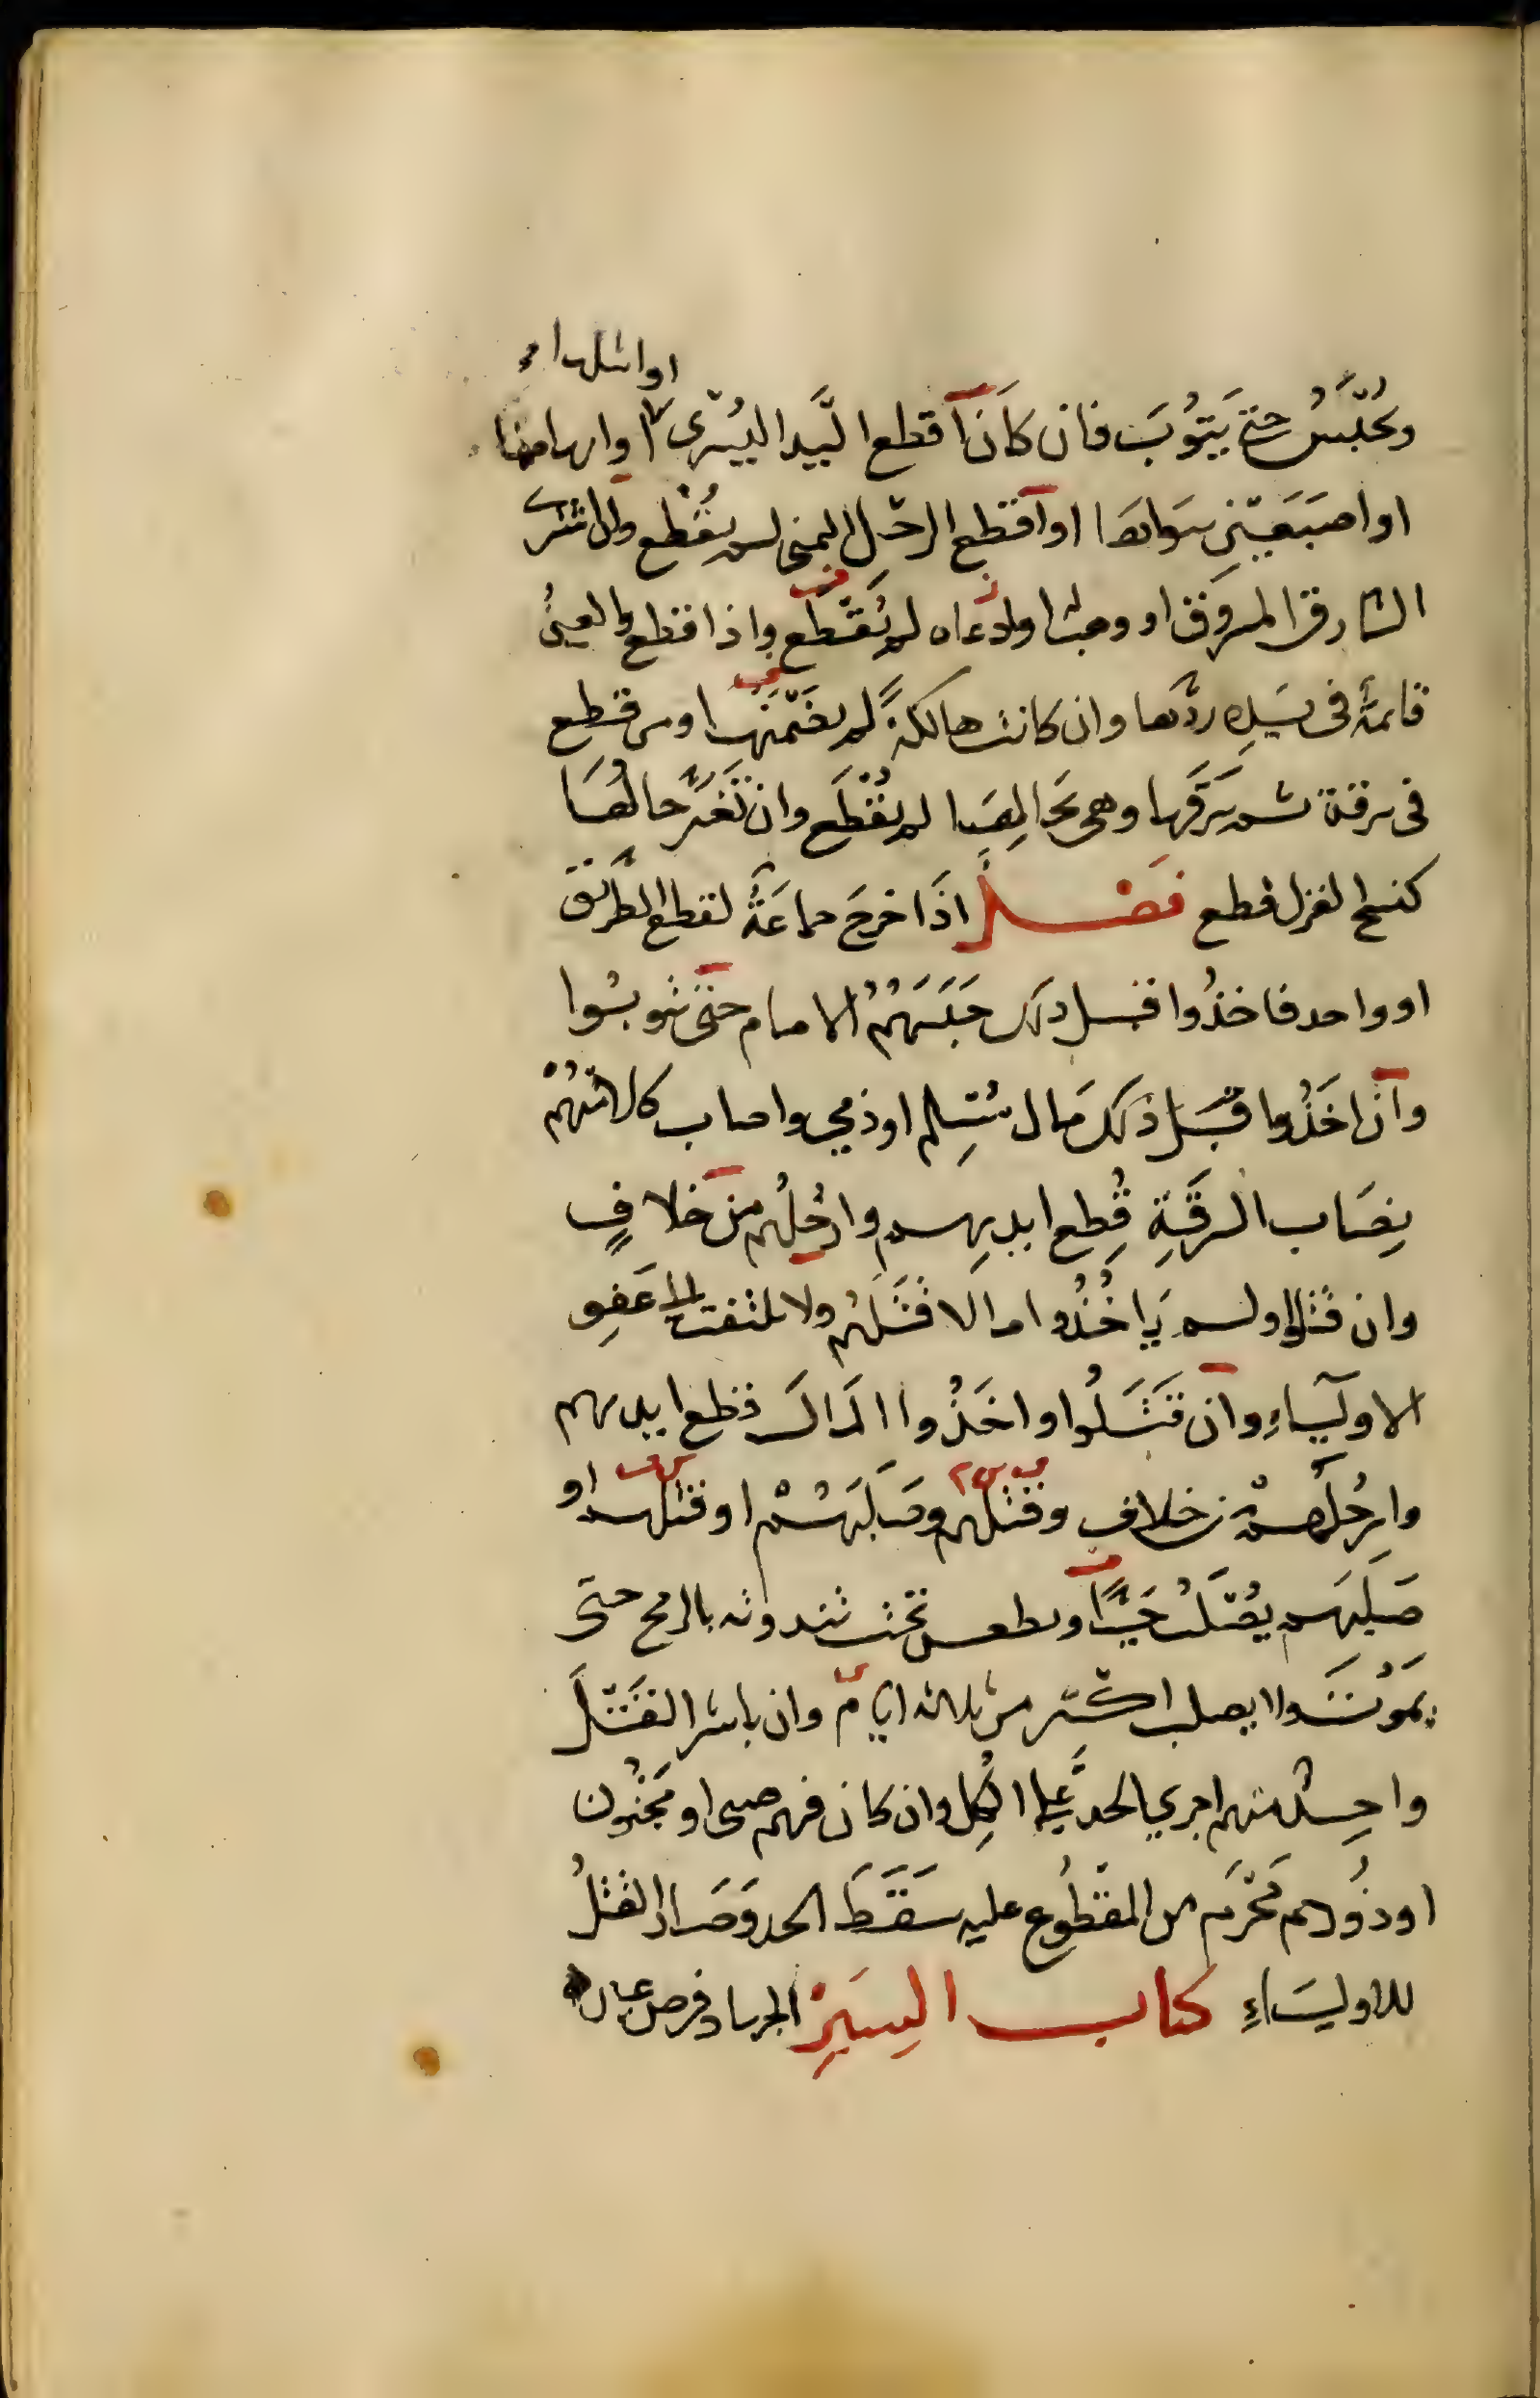 او اشلها
ويُحْبَسُ حتى يَتُوبَ فان كانَ اقطع اليَد اليُسْرى او ابهامها
او اصبَعَيْنِ سواها او اقطع الرجل اليمنى لم يُقْطع وان اشترى
السارق المسروق او وهبت له او ادعاه لم يُقْطع واذا قطع والعينُ
قائمة فى يَدِه ردّها وان كانت هالكةً لم يضمَنْها ومن قطع
فى سرقة ثم سَرَقَها وهى بحَالِهَا لم يُقْطَع وان تغَيَّر حالُهَا
كنسج الغزل قطع فَصْـــل اذَا خرجَ جماعَةٌ لقطع الطريق
او واحد فاخذُوا قبل ذلك حَبَسَهُمُ الامام حتى يتوبُوا
وان اخَذُوا قبْلَ ذلك مَال مُسْلم او ذمي واصاب كلا منهُمْ
نِصَاب السرقَةِ قُطِع ايديهم وارْجُلُهم من خلافٍ
وان قَتلوا ولم يَاخُذُوا مالا قَتَلَهُم ولا يلتفت الى عَفوِ
الاوليَاءِ وان قَتَلُوا واخَذُوا المَالَ قطع ايديهم
وارجُلَهم من خلاف وقتلهم وصَلَبَهُمْ او قتلهم او
صَلَبَهم يُصْلَبُ حَيًّا ويطعن تحت ثندوته بالرمح حتى
يَمُوتَ ولا يصلب اكثر من ثلاثة ايام وان باشر القَتْلَ
واحِدٌ منهم اجرى الحدّ على الكُلِ وان كان فيهم صبى او مَجْنُون
او ذُو رحم مَحْرَم من المقطُوع عليه سَقَطَ الحد وَصَار القَتْلُ
للاوليَاءِ كتاب السِيَرْ الجهاد فرض عين